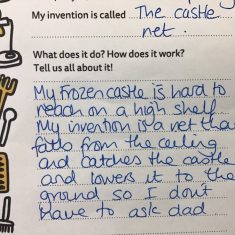 My invention is called The castle
net.
What does it do? How does it work?
Tell us all about it!
My frozen castle is hard to
reach on a high shelf
My invention is a net tha
falls from the ceiling
and catches the castle
and lowers it to the
ground so I don't
have to ask dad.